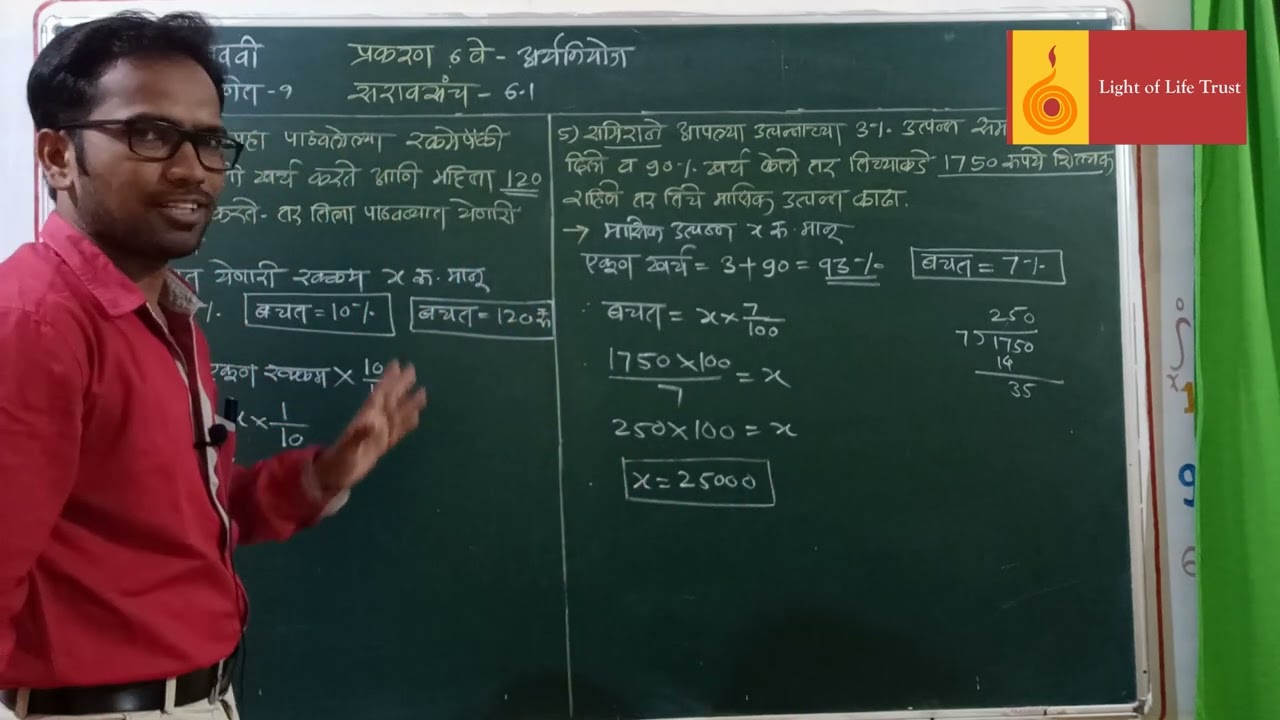 ववी प्रकरण 6 वे - अर्थनियोजन
गणित-१ सरावसंच - 6.1
पाठवलेल्या रकमेपैकी
खर्च करते आणि महिना 120
करते- तर तिला पाठवण्यात येणारी
येणारी रक्कम x रु. मानू
बचत = 10%
बचत = 120 रु
एकूण रक्कम × 10
x × 1/10
5) समिराने आपल्या उत्पन्नाच्या 3% उत्पन्न
दिले व 90% खर्च केले तर तिच्याकडे 1750 रुपये शिल्लक
राहिले तर तिचे मासिक उत्पन्न काढा.
→ मासिक उत्पन्न x रु. मानू
एकूण खर्च = 3 + 90 = 93% बचत = 7%
∴ बचत = x × 7/100
1750 × 100 / 7 = x
250 × 100 = x
x = 25000
250
7) 1750
14
35
Light of Life Trust